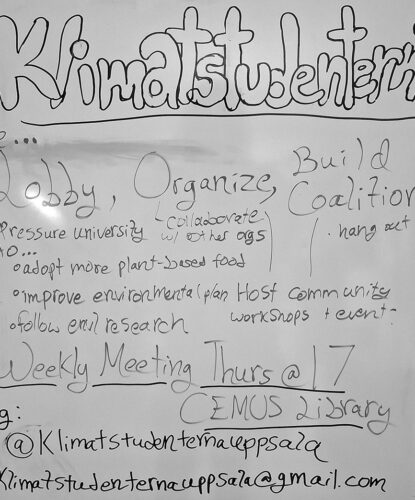 Klimatstudentern
...
Lobby, Organize, Build Coalition
Pressure university
to...
- collaborate w/ other orgs
. hang out
• adopt more plant-based food
• improve environmental plan
• follow envil research
Host community
workshops + event
Weekly Meeting Thurs @ 17
CEMUS Library
g:
@Klimatstudenternauppsala
Klimatstudenternauppsala@gmail.com